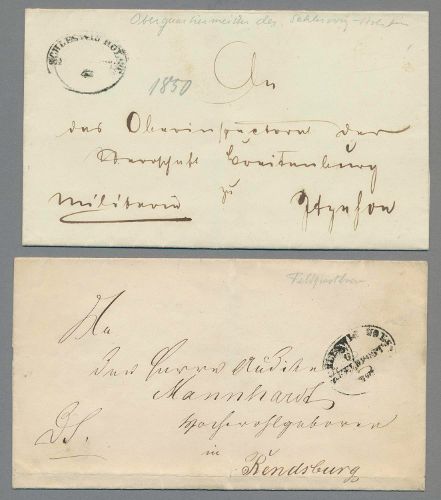 Oberquartiermeister des Schleswig-Holstein
SCHLESWIG HOLST
1850
An
das Oberinspectorat der
Herrschaft Breitenburg
Militaria zu Itzehoe
Feldpostbrief
An
den Herrn Auditeur
Mannhardt
Hochwohlgeboren
D.S. in
Rendsburg
SCHLESWIG HOLST
FELDPOST